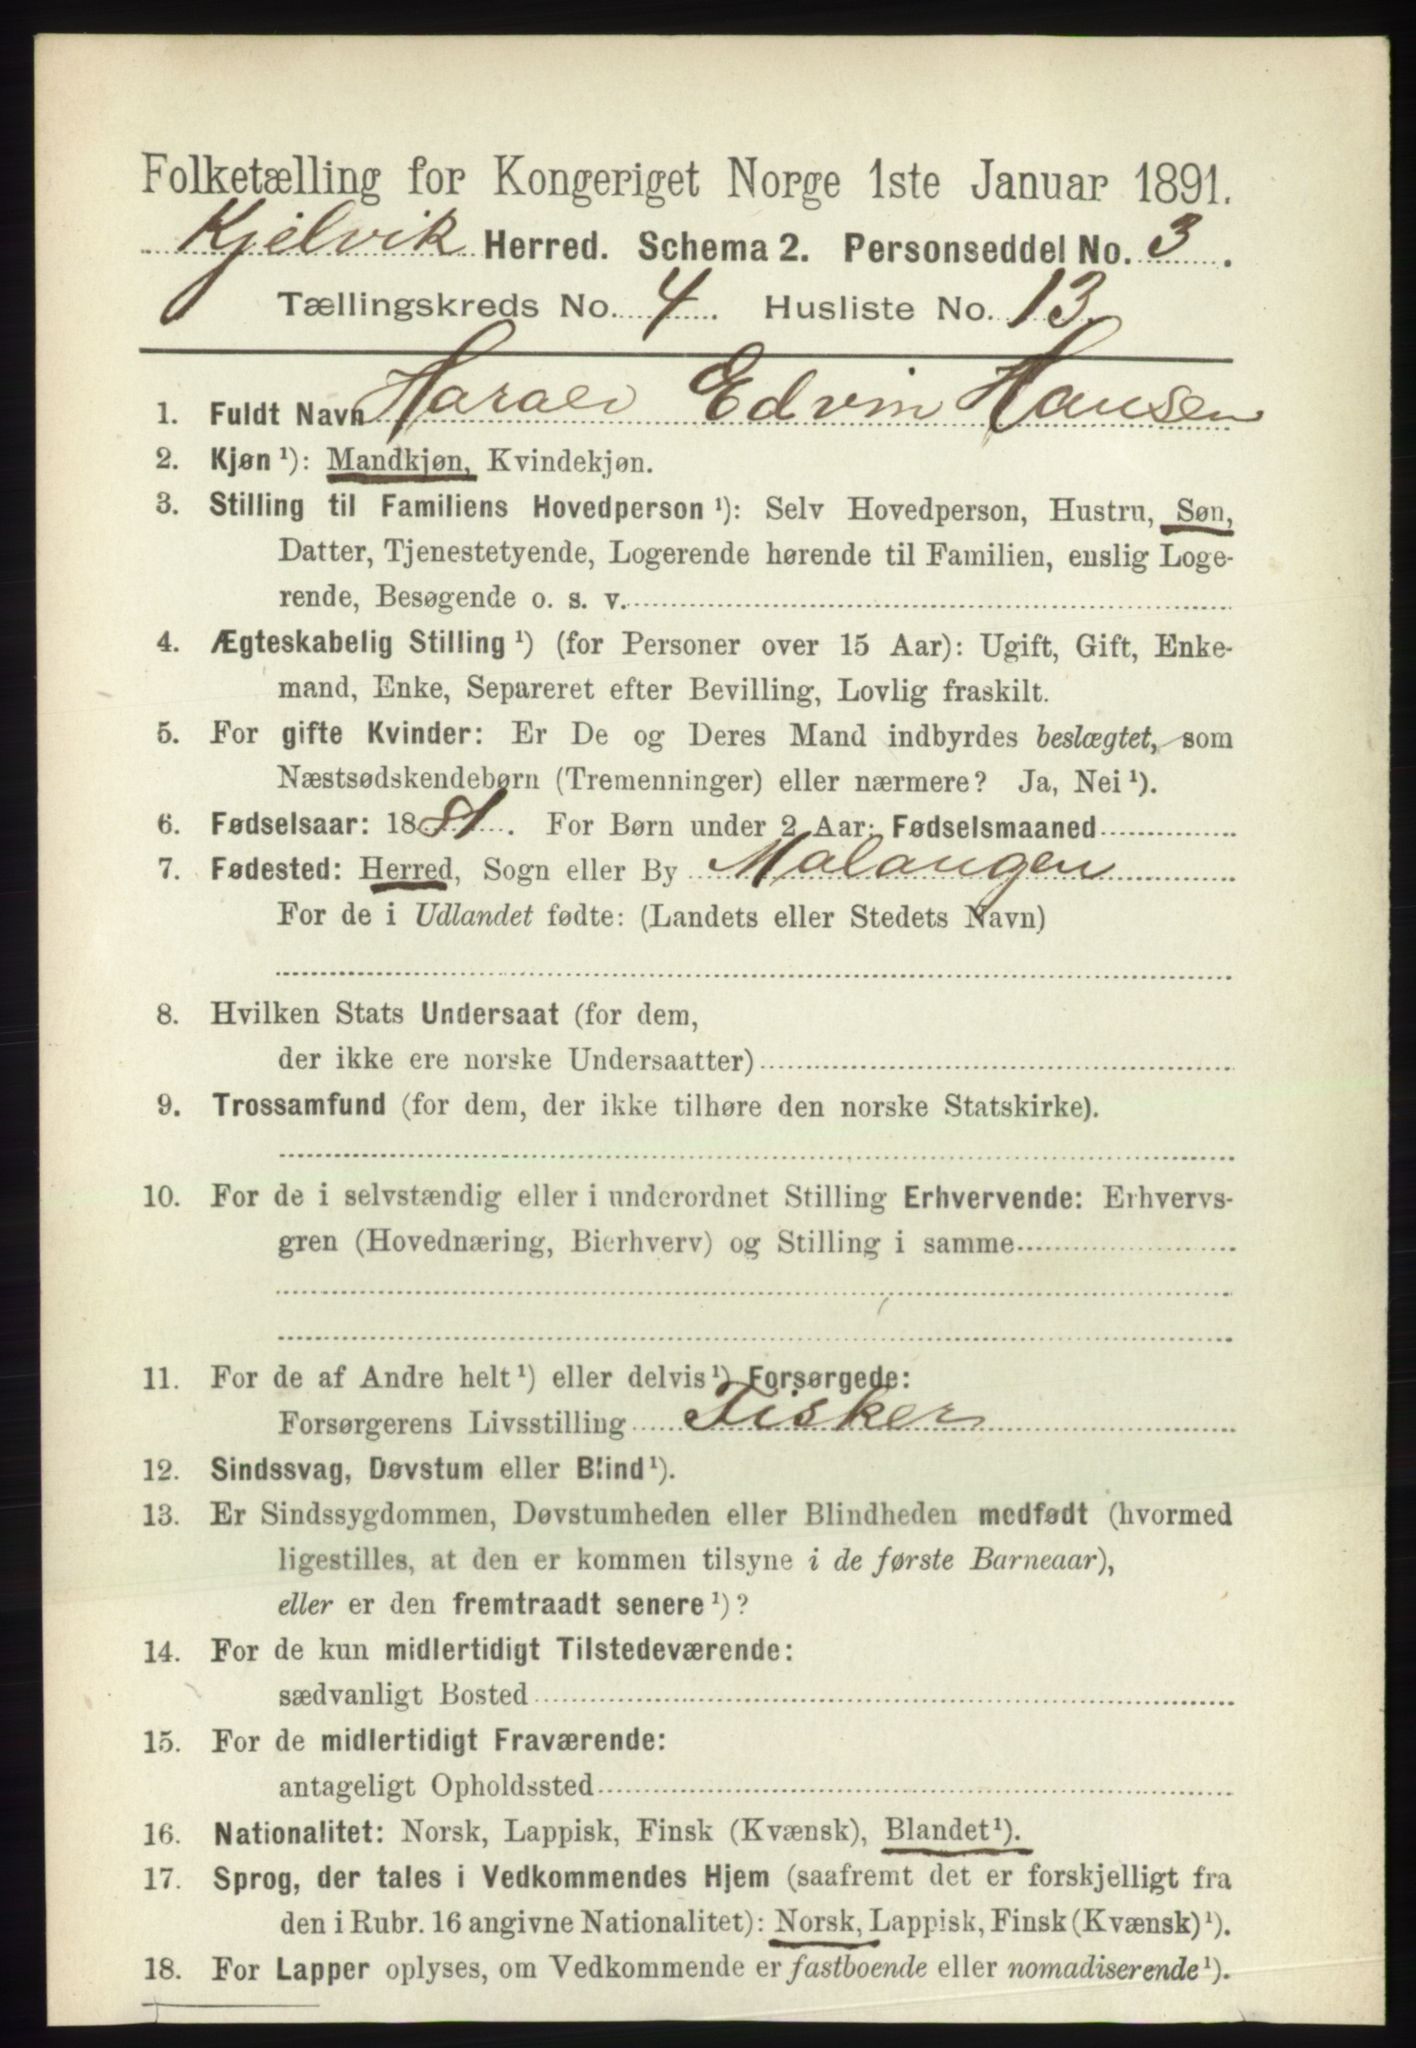 Folketælling for Kongeriget Norge 1ste Januar 1891.
Kjelvik Herred. Schema 2. Personseddel No. 3.
Tællingskreds No. 4. Husliste No. 13.
1. Fuldt Navn Harald Edvin Hansen
2. Kjøn ¹): Mandkjøn, Kvindekjøn.
3. Stilling til Familiens Hovedperson ¹): Selv Hovedperson, Hustru, Søn,
Datter, Tjenestetyende, Logerende hørende til Familien, enslig Loge-
rende, Besøgende o. s. v.
4. Ægteskabelig Stilling ¹) (for Personer over 15 Aar): Ugift, Gift, Enke-
mand, Enke, Separeret efter Bevilling, Lovlig fraskilt.
5. For gifte Kvinder: Er De og Deres Mand indbyrdes beslægtet, som
Næstsødskendebørn (Tremenninger) eller nærmere? Ja, Nei ¹).
6. Fødselsaar: 1881. For Børn under 2 Aar: Fødselsmaaned
7. Fødested: Herred, Sogn eller By Malangen
For de i Udlandet fødte: (Landets eller Stedets Navn)
8. Hvilken Stats Undersaat (for dem,
der ikke ere norske Undersaatter)
9. Trossamfund (for dem, der ikke tilhøre den norske Statskirke).
10. For de i selvstændig eller i underordnet Stilling Erhvervende: Erhvervs-
gren (Hovednæring, Bierhverv) og Stilling i samme
11. For de af Andre helt ¹) eller delvis ¹) Forsørgede:
Forsørgerens Livsstilling Fisker
12. Sindssvag, Døvstum eller Blind ¹).
13. Er Sindssygdommen, Døvstumheden eller Blindheden medfødt (hvormed
ligestilles, at den er kommen tilsyne i de første Barneaar),
eller er den fremtraadt senere ¹)?
14. For de kun midlertidigt Tilstedeværende:
sædvanligt Bosted
15. For de midlertidigt Fraværende:
antageligt Opholdssted
16. Nationalitet: Norsk, Lappisk, Finsk (Kvænsk), Blandet ¹).
17. Sprog, der tales i Vedkommendes Hjem (saafremt det er forskjelligt fra
den i Rubr. 16 angivne Nationalitet): Norsk, Lappisk, Finsk (Kvænsk) ¹).
18. For Lapper oplyses, om Vedkommende er fastboende eller nomadiserende ¹).